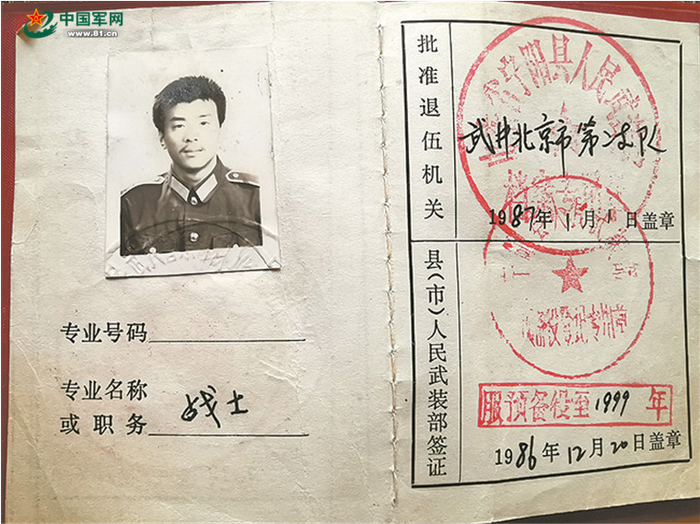 中国军网
www.81.cn
专业号码
专业名称
或职务 战士
批准退伍机关
武井北京市第二支队
1987年1月1日盖章
县(市)人民武装部签证
服预备役至1999年
1986年12月20日盖章